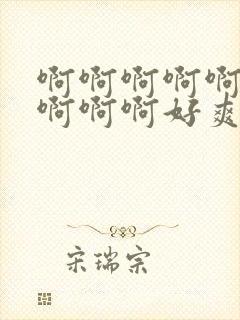 啊啊啊啊啊
啊啊啊好爽
宋瑞宗